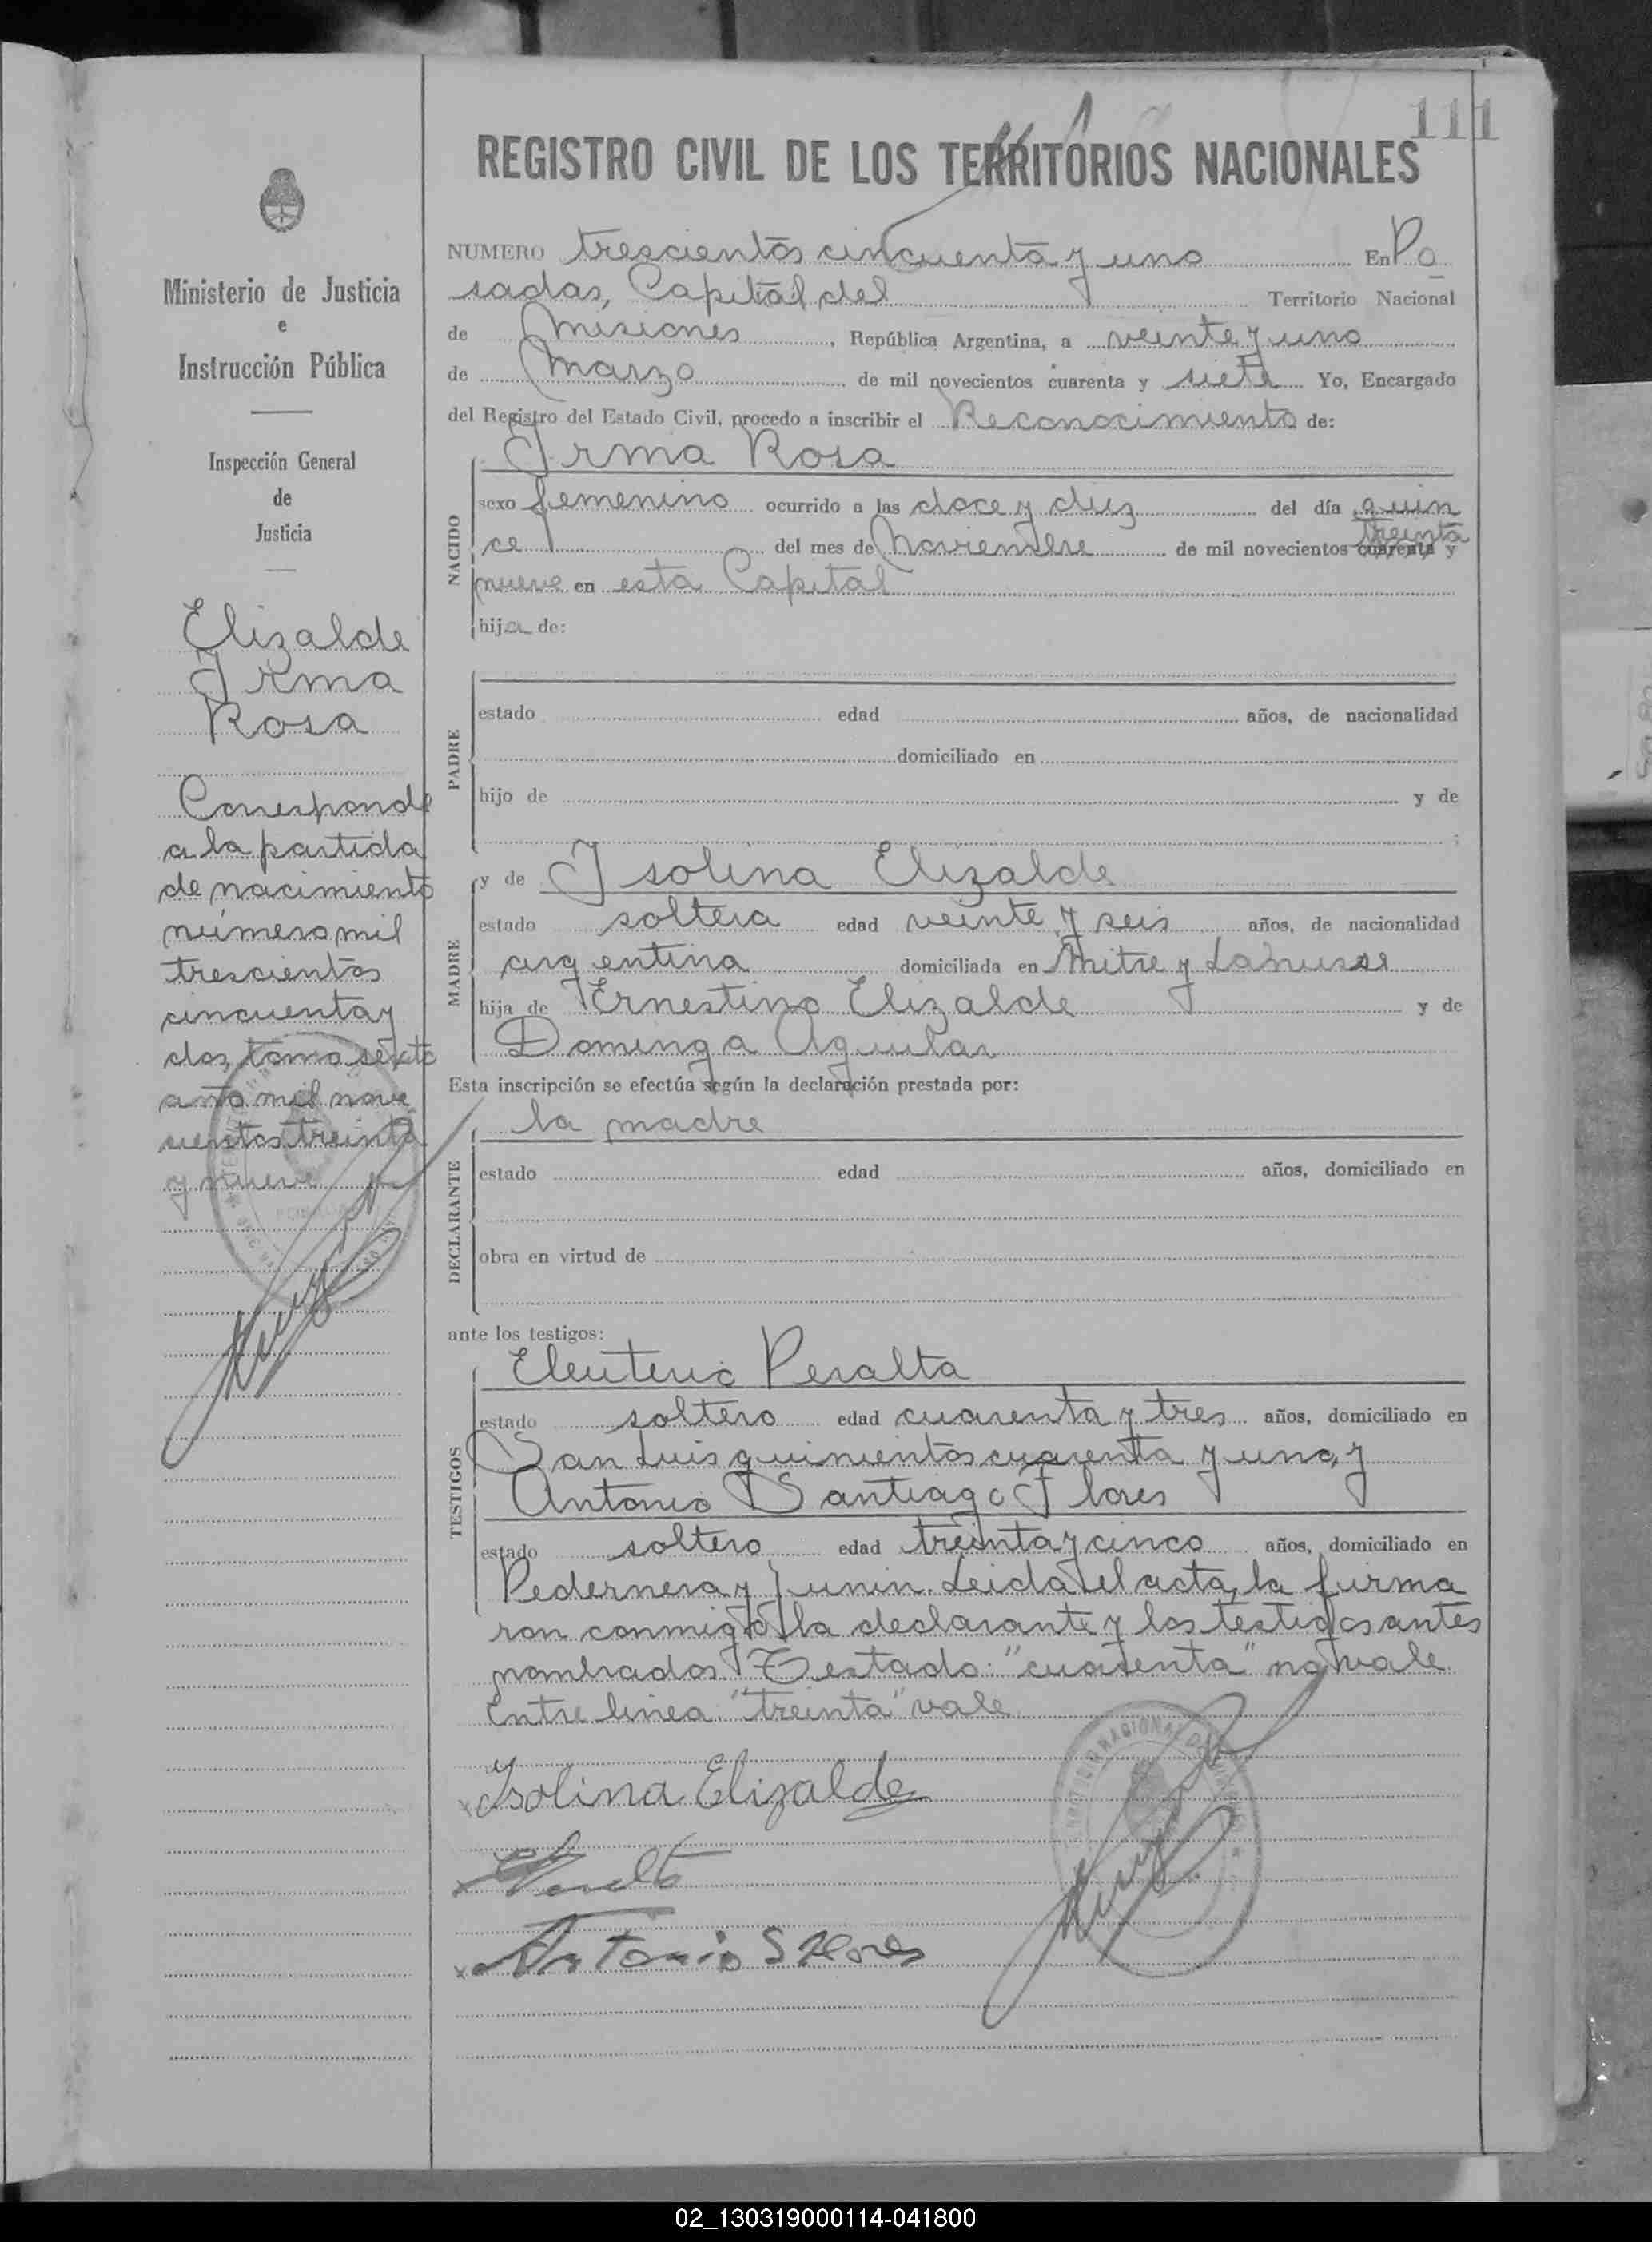 111
REGISTRO CIVIL DE LOS TERRITORIOS NACIONALES
Ministerio de Justicia
e
Instrucción Pública
Inspección General
de
Justicia
Elizalde
Irma
Rosa
Corresponde
a la partida
de nacimiento
número mil
trescientos
cincuenta y
dos, tomo sexto
año mil nove
cientos treinta
y nueve
NUMERO trescientos cincuenta y uno En Po
sadas, Capital del Territorio Nacional
de Misiones, República Argentina, a veinte y uno
de Marzo de mil novecientos cuarenta y siete Yo, Encargado
del Registro del Estado Civil, procedo a inscribir el Reconocimiento de:
Irma Rosa
NACIDO
sexo femenino ocurrido a las doce y diez del día quin
ce del mes de Noviembre de mil novecientos cuarenta treinta y
nueve en esta Capital
hija de:
PADRE
estado edad años, de nacionalidad
domiciliado en
hijo de y de
MADRE
y de Isolina Elizalde
estado soltera edad veinte y seis años, de nacionalidad
argentina domiciliada en Mitre y Lanusse
hija de Ernestino Elizalde y de
Dominga Aguilar
Esta inscripción se efectúa según la declaración prestada por:
la madre
DECLARANTE
estado edad años, domiciliado en
obra en virtud de
ante los testigos:
TESTIGOS
Eleuterio Peralta
estado soltero edad cuarenta y tres años, domiciliado en
San Luis quinientos cuarenta y uno, y
Antonio Santiago Flores
estado soltero edad treinta y cinco años, domiciliado en
Pedernera y Junin. Leida el acta, la firma
ron conmigo la declarante y los testigos antes
nombrados. Testado: "cuarenta" no vale
Entre linea: "treinta" vale
Isolina Elizalde
Antonio S Flores
02_130319000114-041800